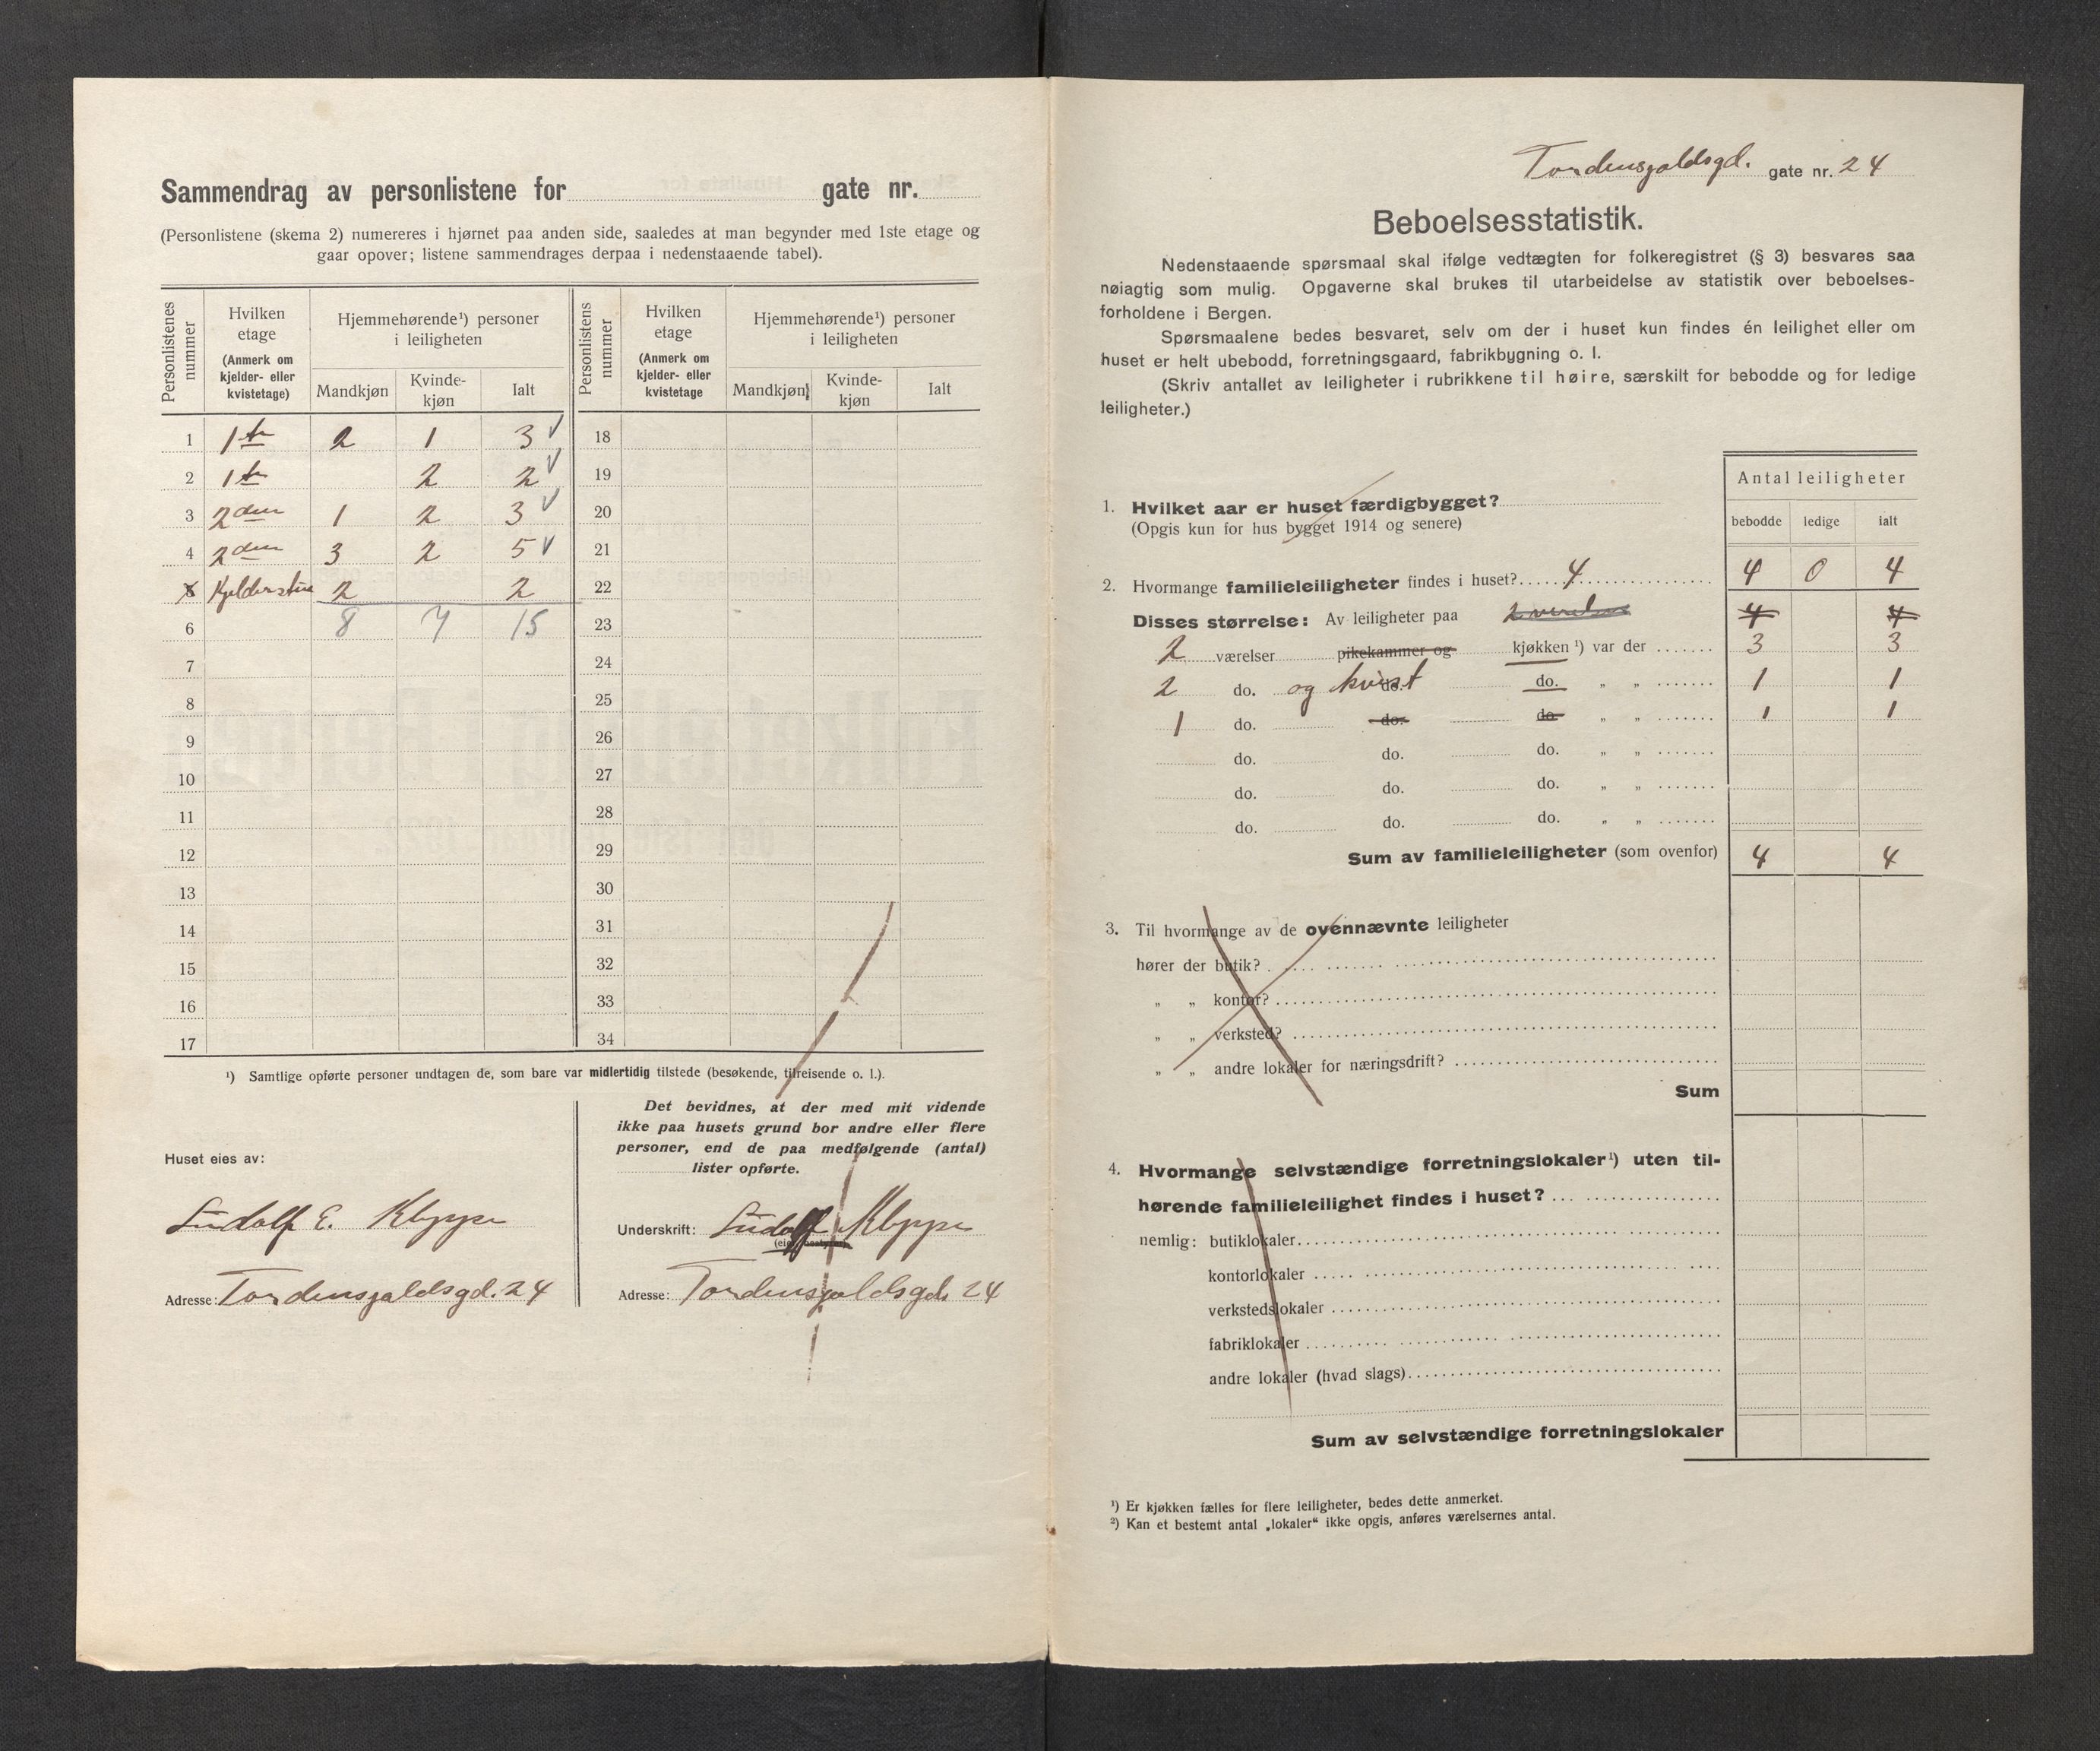 Sammendrag av personlistene for gate nr.
(Personlistene (skema 2) numereres i hjørnet paa anden side, saaledes at man begynder med 1ste etage og
gaar opover; listene sammendrages derpaa i nedenstaaende tabel).
Personlistenes nummer
Hvilken etage (Anmerk om kjelder- eller kvistetage)
Hjemmehørende¹) personer i leiligheten
Mandkjøn Kvinde-kjøn Ialt
Personlistens nummer
Hvilken etage (Anmerk om kjelder- eller kvistetage
Hjemmehørende¹) personer i leiligheten
Mandkjøn Kvinde-kjøn Ialt
1 1ste 2 1 3 √ 18
2 1ste 2 2 √ 19
3 2den 1 2 3 √ 20
4 2den 3 2 5 √ 21
5 Kjelderstue 2 2 22
6 8 7 15 23
7 24
8 25
9 26
10 27
11 28
12 29
13 30
14 31
15 32
16 33
17 34
¹) Samtlige opførte personer undtagen de, som bare var midlertidig tilstede (besøkende, tilreisende o. l.).
Huset eies av:
Ludolf E. Kleppe
Adresse: Tordensjoldsgd. 24
Det bevidnes, at der med mit vidende
ikke paa husets grund bor andre eller flere
personer, end de paa medfølgende (antal)
lister opførte.
Underskrift: Ludolf Kleppe
Adresse: Tordensjoldsgd. 24
Tordensjoldsgd. gate nr. 24
Beboelsesstatistik.
Nedenstaaende spørsmaal skal ifølge vedtægten for folkeregistret (§ 3) besvares saa
nøiagtig som mulig. Opgaverne skal brukes til utarbeidelse av statistik over beboelses-
forholdene i Bergen.
Spørsmaalene bedes besvaret, selv om der i huset kun findes én leilighet eller om
huset er helt ubebodd, forretningsgaard, fabrikbygning o. l.
(Skriv antallet av leiligheter i rubrikkene til høire, særskilt for bebodde og for ledige
leiligheter.)
Antal leiligheter
bebodde ledige ialt
1. Hvilket aar er huset færdigbygget?
(Opgis kun for hus bygget 1914 og senere)
2. Hvormange familieleiligheter findes i huset? 4 4 0 4
Disses størrelse: Av leiligheter paa 2 værelser 4 4
2 værelser pikekammer og kjøkken ¹) var der 3 3
2 do. og kvist do. do. „ „ 1 1
1 do. do. do. „ „ 1 1
do. do. do. „ „
do. do. do. „ „
do. do. do. „ „
Sum av familieleiligheter (som ovenfor) 4 4
3. Til hvormange av de ovennævnte leiligheter
hører der butik?
„ „ kontor?
„ „ verksted?
„ „ andre lokaler for næringsdrift?
Sum
4. Hvormange selvstændige forretningslokaler¹) uten til-
hørende familieleilighet findes i huset?
nemlig: butiklokaler
kontorlokaler
verkstedslokaler
fabriklokaler
andre lokaler (hvad slags)
Sum av selvstændige forretningslokaler
¹) Er kjøkken fælles for flere leiligheter, bedes dette anmerket.
²) Kan et bestemt antal „lokaler“ ikke opgis, anføres værelsernes antal.